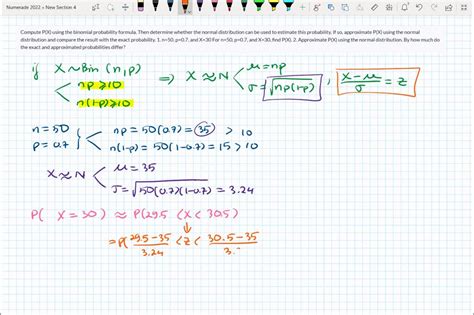 Numerade 2022 » New Section 4
Compute P(X) using the binomial probability formula. Then determine whether the normal distribution can be used to estimate this probability. If so, approximate P(X) using the normal
distribution and compare the result with the exact probability. 1. n=50, p=0.7, and X=30 For n=50, p=0.7, and X=30, find P(X). 2. Approximate P(X) using the normal distribution. By how much do
the exact and approximated probabilities differ?
if X~Bin (n,p) ⇒ X≈N < μ=np
< np≥10 σ=√np(1-p) , X-μ/σ = Z
n(1-p)≥10
n=50 } < np = 50(0.7) = 35 > 10
p=0.7 n(1-p) = 50(1-0.7) = 15 > 10
X≈N < μ=35
σ=√50(0.7)(1-0.7) = 3.24
P( X=30) ≈ P(29.5 <X< 30.5)
↓
= P( 29.5-35/3.24 <Z< 30.5-35/3.